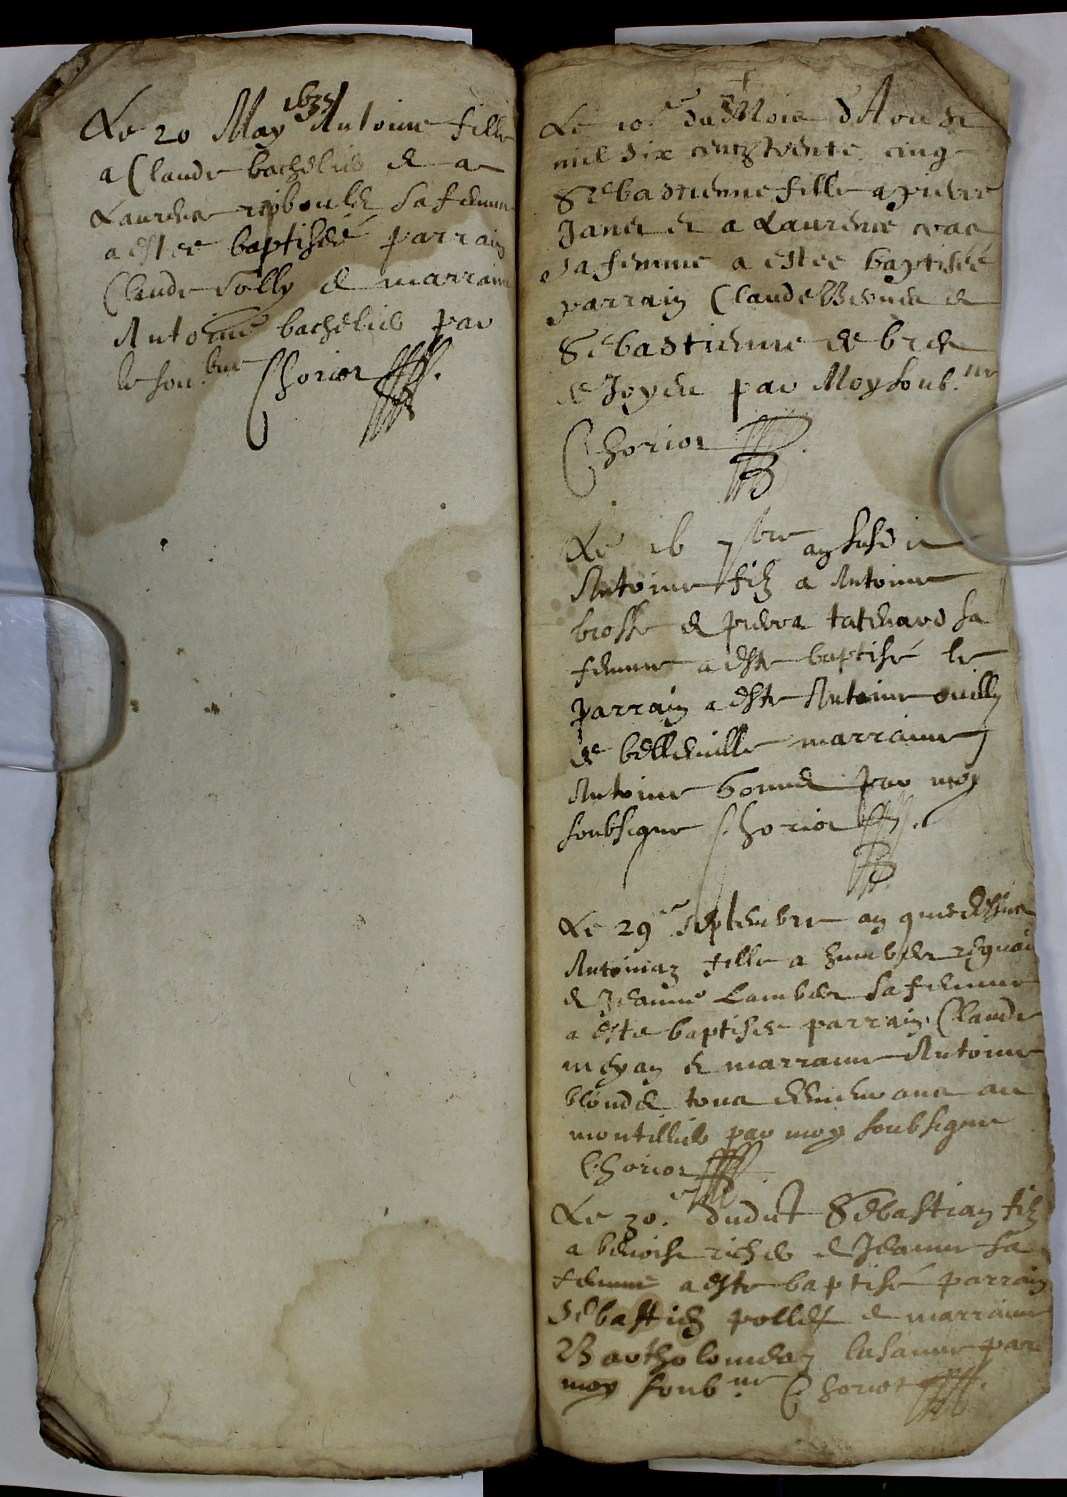 Le 20 May 1635 Antoine fille
a Claude bachelier et a
Laurence riboulet sa femme
a estee baptisée parrain
Claude Solly et marraine
Antoine bachelier par
le soubne Chorier
Le 10e du Mois d'Aoust
mil six centz trente cinq
Sebastienne fille a pierre
Janet et a Laurence
sa femme a estee baptisée
parrain Claude et
Sebastienne
de par Moy soub.ne
Chorier
Le 16 7bre an susdit
Antoine filz a Antoine
brosse et pierra sa
femme a este baptisé le
parrain a este Antoine
de belleville marraine
Antoine bonnet par moy
soubsigne Chorier
Le 29e septembre an que dessus
Antoinaz fille a humbert
et Jeanne Lambert sa femme
a este baptisee parrain Claude
meyan et marraine Antoine
blondet tous
montillier par moy soubsigne
Chorier
Le 30e dudict Sebastian filz
a benoist richer et Jeanne sa
femme a este baptisé parrain
Sebastien pollet et marraine
Bartholomeaz par
moy soubne Chorier